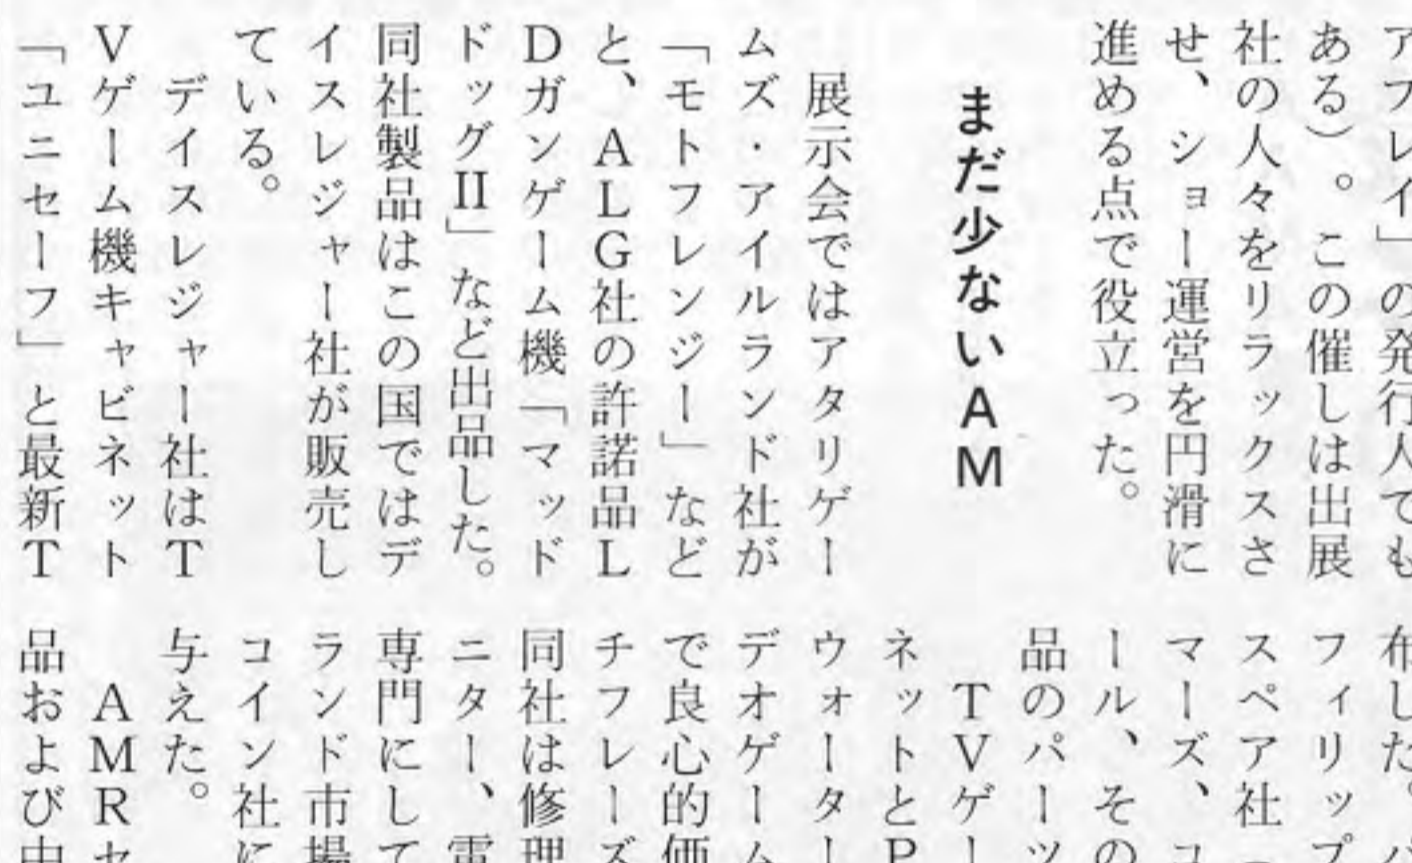 アプレイ」の発行人でも
ある）。この催しは出展
社の人々をリラックスさ
せ、ショー運営を円滑に
進める点で役立った。
まだ少ないＡＭ
展示会ではアタリゲー
ムズ・アイルランド社が
「モトフレンジー」など
と、ＡＬＧ社の許諾品Ｌ
Ｄガンゲーム機「マッド
ドッグⅡ」など出品した。
同社製品はこの国ではデ
イスレジャー社が販売し
ている。
デイスレジャー社はＴ
Ｖゲーム機キャビネット
「ユニセーフ」と最新Ｔ
布した。
フィリップ
スペア社
マーズ、ユ
ール、その
品のパーツ
ＴＶゲー
ネットとＰ
ウォーター
デオゲーム
で良心的価
チフレーズ
同社は修理
ニター、電
専門にして
ランド市場
コイン社に
与えた。
ＡＭＲセ
品および中